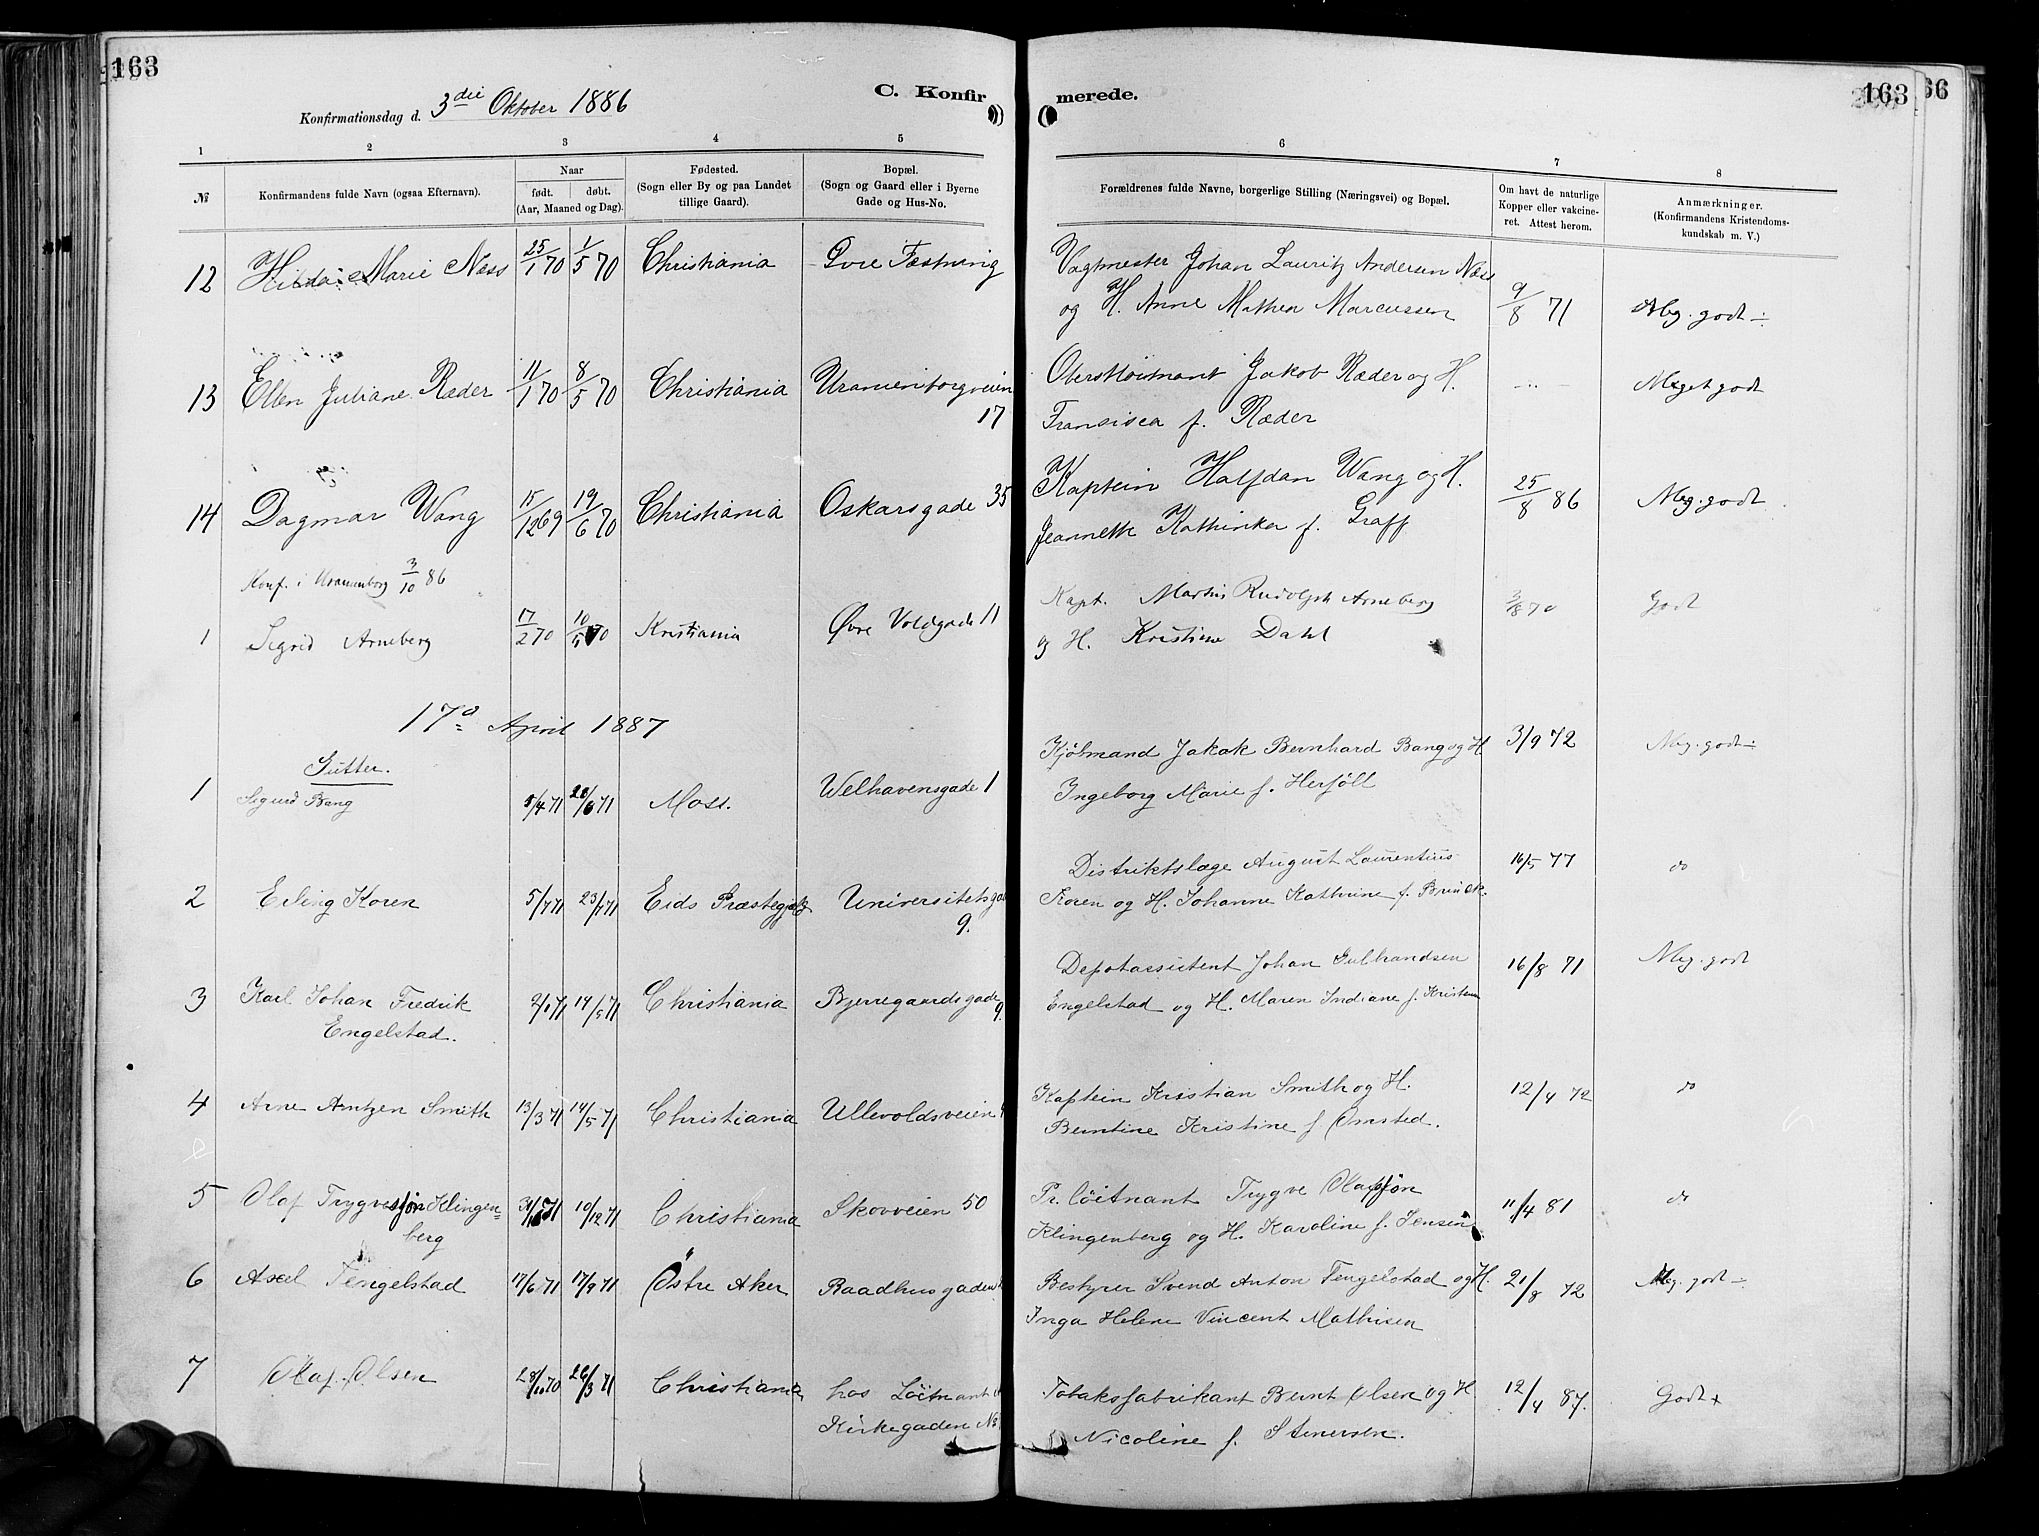 163
C. Konfir
merede.
163
66
Konfirmationsdag d. 3die Oktober 1886
1 2 3 4 5 6 7 8
№
Konfirmandens fulde Navn (ogsaa Efternavn).
Naar
født. døbt.
(Aar, Maaned og Dag).
Fødested.
(Sogn eller By og paa Landet
tillige Gaard).
Bopæl.
(Sogn og Gaard eller i Byerne
Gade og Hus-No.
Forældrenes fulde Navne, borgerlige Stilling (Næringsvei) og Bopæl.
Om havt de naturlige
Kopper eller vakcine-
ret. Attest herom.
Anmærkninger.
(Konfirmandens Kristendoms-
kundskab m. V.)
12 Hilda Marie Næss 25/1 70 1/5 70 Christiania Øvre Fæstning Vagtmester Johan Lauritz Andersen Næss
og H. Anne Mathea Marcussen 9/8 71 Meg. godt ÷
13 Ellen Juliane Ræder 11/1 70 8/5 70 Christiania Uranienborgveien Oberstløitnant Jakob Ræder og H. Meget godt
17 Fransisca f. Ræder
14 Dagmar Wang 15/12 69 19/6 70 Christiania Oskarsgade 35 Kaptein Halfdan Wang og H. 25/8 86 Meg. godt
Jeannette Kathinka f. Graff
Konf. i Uranienborg 3/10 86
1 Sigrid Arneberg 17/2 70 10/5 70 Kristiania Øvre Voldgade 11 Kapt. Martin Rudolph Arneberg 3/8 70 Godt
og H. Kristine Dahl
17de April 1887
Gutter.
1 Sigurd Bang 5/4 71 28/6 71 Moss. Welhavensgade 1 Kjøbmand Jakob Bernhard Bang og H 3/9 72 Meg. godt ÷
Ingeborg Marie f. Herföll
2 Erling Koren 5/7 71 23/7 71 Eids Præstegjeld Universitetsga Distriktslæge August Laurentius 16/5 77 do
9. Koren og H. Johanne Kathrine f. Brinck.
3 Karl Johan Fredrik 2/1 71 14/5 71 Christiania Bjerregaardsgade Depotassistent Johan Gulbrandsen 16/8 71 Meg. godt
Engelstad. 9. Engelstad og H. Maren Indiane f. Kristen
4 Arne Arntzen Smith 13/3 71 14/5 71 Christiania Ullevoldsveien Kaptein Kristian Smith og H. 12/4 72 do
Berntine Kristine f Omsted.
5 Olaf Trygvessøn Klingen= 10/12 71 Christiania Skovveien 50 Pr. löitnant Trygve Olafsøn 11/4 81 do
berg Klingenberg og H. Karoline f. Jensen
6 Axel Tengelstad 17/6 71 17/9 71 Østre Aker Raadhusgaden Bestyrer Svend Anton Tengelstad og H. 21/8 72 Meg. godt ÷
Inga Helene Vincent Mathisen
7 Olaf Olsen 28/10 70 26/3 71 Christiania hos Löitnant Tobaksfabrikant Bernt Olsen og H 12/4 87. Godt +
Kirkegaden No Nicoline f. Stenersen.